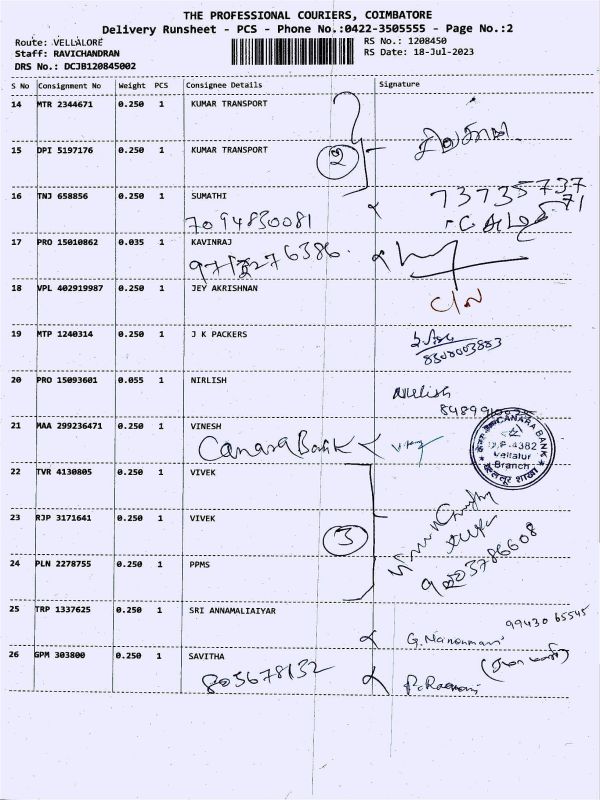 THE PROFESSIONAL COURIERS, COIMBATORE
Delivery Runsheet - PCS - Phone No.:0422-3505555 - Page No.:2
Route: VELLALORE
RS No.: 1208450
Staff: RAVICHANDRAN
RS Date: 18-Jul-2023
DRS No.: DCJB120845002
S No Consignment No Weight PCS Consignee Details Signature
14 MTR 2344671 0.250 1 KUMAR TRANSPORT
15 DPI 5197176 0.250 1 KUMAR TRANSPORT
2
16 TNJ 658856 0.250 1 SUMATHI
7373573771
7094830081
17 PRO 15010862 0.035 1 KAVINRAJ
18 VPL 402919987 0.250 1 JEY AKRISHNAN
C/N
19 MTP 1240314 0.250 1 J K PACKERS
20 PRO 15093601 0.055 1 NIRLISH
Nirlish
21 MAA 299236471 0.250 1 VINESH
Canara Bank
CANARA BANK
Vellalur
Branch
22 TVR 4130805 0.250 1 VIVEK
23 RJP 3171641 0.250 1 VIVEK
3
24 PLN 2278755 0.250 1 PPMS
25 TRP 1337625 0.250 1 SRI ANNAMALIAIYAR
99430 65545
26 GPM 303800 0.250 1 SAVITHA
803678132